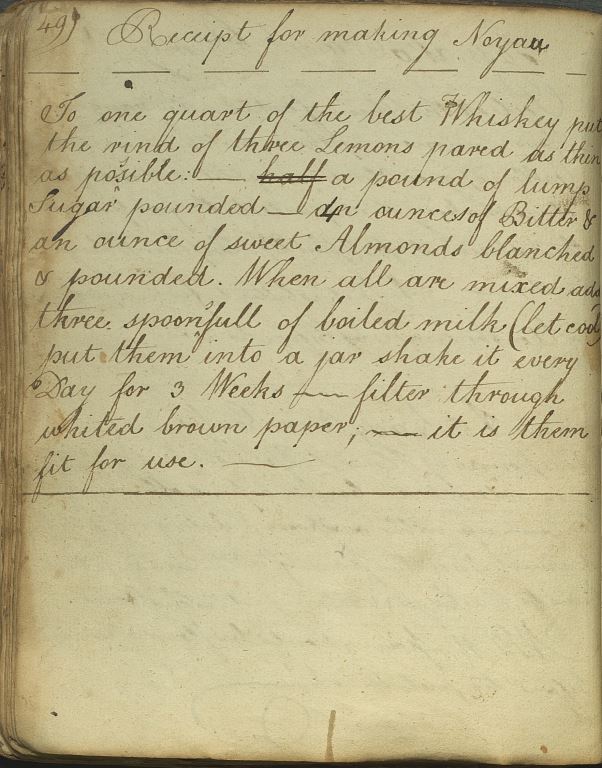 49)
Receipt for making Noyau
To one quart of the best Whiskey put
the rind of three Lemons pared as thin
as posible: — ~~half~~ a pound of lump
Sugar pounded — 4 ounces of Bitter &
an ounce of sweet Almonds blanched
& pounded. When all are mixed add
three spoonsfull of boiled milk (let cool)
put them into a jar shake it every
Day for 3 Weeks — filter through
whited brown paper; — it is them
fit for use. —